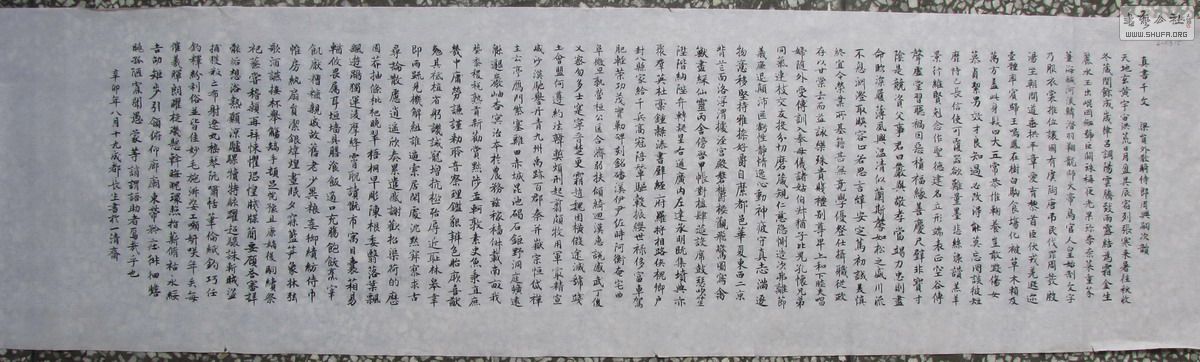 真書千文 梁員外散騎侍郎周興嗣次韻
天地玄黃宇宙洪荒日月盈昃辰宿列張寒來暑往秋收
冬藏閏餘成歲律呂調陽雲騰致雨露結為霜金生
麗水玉出崑崗劍號巨闕珠稱夜光果珍李柰菜重芥
薑海鹹河淡鱗潛羽翔龍師火帝鳥官人皇始制文字
乃服衣裳推位讓國有虞陶唐弔民伐罪周發殷
湯坐朝問道垂拱平章愛育黎首臣伏戎羌遐邇
壹體率賓歸王鳴鳳在樹白駒食場化被草木賴及
萬方蓋此身髮四大五常恭惟鞠養豈敢毀傷女
慕貞絜男效才良知過必改得能莫忘罔談彼短
靡恃己長信使可覆器欲難量墨悲絲染詩讚羔羊
景行維賢克念作聖德建名立形端表正空谷傳
聲虛堂習聽禍因惡積福緣善慶尺璧非寶寸
陰是競資父事君曰嚴與敬孝當竭力忠則盡
命臨深履薄夙興溫凊似蘭斯馨如松之盛川流
不息淵澄取映容止若思言辭安定篤初誠美慎
終宜令榮業所基籍甚無竟學優登仕攝職從政
存以甘棠去而益詠樂殊貴賤禮別尊卑上和下睦夫唱
婦隨外受傅訓入奉母儀諸姑伯叔猶子比兒孔懷兄弟
同氣連枝交友投分切磨箴規仁慈隱惻造次弗離節
義廉退顛沛匪虧性靜情逸心動神疲守真志滿逐
物意移堅持雅操好爵自縻都邑華夏東西二京
背芒面洛浮渭據涇宮殿盤鬱樓觀飛驚圖寫禽
獸畫綵仙靈丙舍傍啟甲帳對楹肆筵設席鼓瑟吹笙
陞階納陛弁轉疑星右通廣內左達承明既集墳典亦
聚群英杜稾鍾隸漆書壁經府羅將相路俠槐卿戶
封八縣家給千兵高冠陪輦驅轂振纓世祿侈富車駕
肥輕策功茂實勒碑刻銘磻溪伊尹佐時阿衡奄宅曲
阜微旦孰營桓公匡合濟弱扶傾綺迴漢惠說感武丁俊
乂密勿多士寔寧晉楚更霸趙魏困橫假途滅虢踐
土會盟何遵約法韓弊煩刑起翦頗牧用軍最精宣
威沙漠馳譽丹青九州禹跡百郡秦并嶽宗恒岱禪
主云亭雁門紫塞雞田赤城昆池碣石鉅野洞庭曠遠
綿邈巖岫杳冥治本於農務茲稼穡俶載南畝我
藝黍稷稅熟貢新勸賞黜陟孟軻敦素史魚秉直庶
幾中庸勞謙謹勑聆音察理鑑貌辨色貽厥嘉猷
勉其祗植省躬譏誡寵增抗極殆辱近恥林皋幸
即兩疏見機解組誰逼索居閑處沉默寂寥求古
尋論散慮逍遙欣奏累遣慼謝歡招渠荷的歷
園莽抽條枇杷晚翠梧桐早彫陳根委翳落葉飄
颻遊鵾獨運凌摩絳霄耽讀翫市寓目囊箱易
輶攸畏屬耳垣牆具膳飧飯適口充腸飽飫烹宰
飢厭糟糠親戚故舊老少異糧妾御績紡侍巾
帷房紈扇員潔銀燭煒煌晝眠夕寐藍笋象床弦
歌酒讌接杯舉觴矯手頓足悅豫且康嫡後嗣續祭
祀蒸嘗稽顙再拜悚懼恐惶牋牒簡要顧答審詳
骸垢想浴執熱願涼驢騾犢特駭躍超驤誅斬賊盜
捕獲叛亡布射遼丸嵇琴阮嘯恬筆倫紙鈞巧任
釣釋紛利俗並皆佳妙毛施淑姿工顰妍笑年矢每
催羲暉朗曜璇璣懸斡晦魄環照指薪修祜永綏
吉劭矩步引領俯仰廊廟束帶矜莊徘徊瞻
眺孤陋寡聞愚蒙等誚謂語助者焉哉乎也
辛卯年八月十九成都長生書於一清齋
WWW.SHUFA.ORG